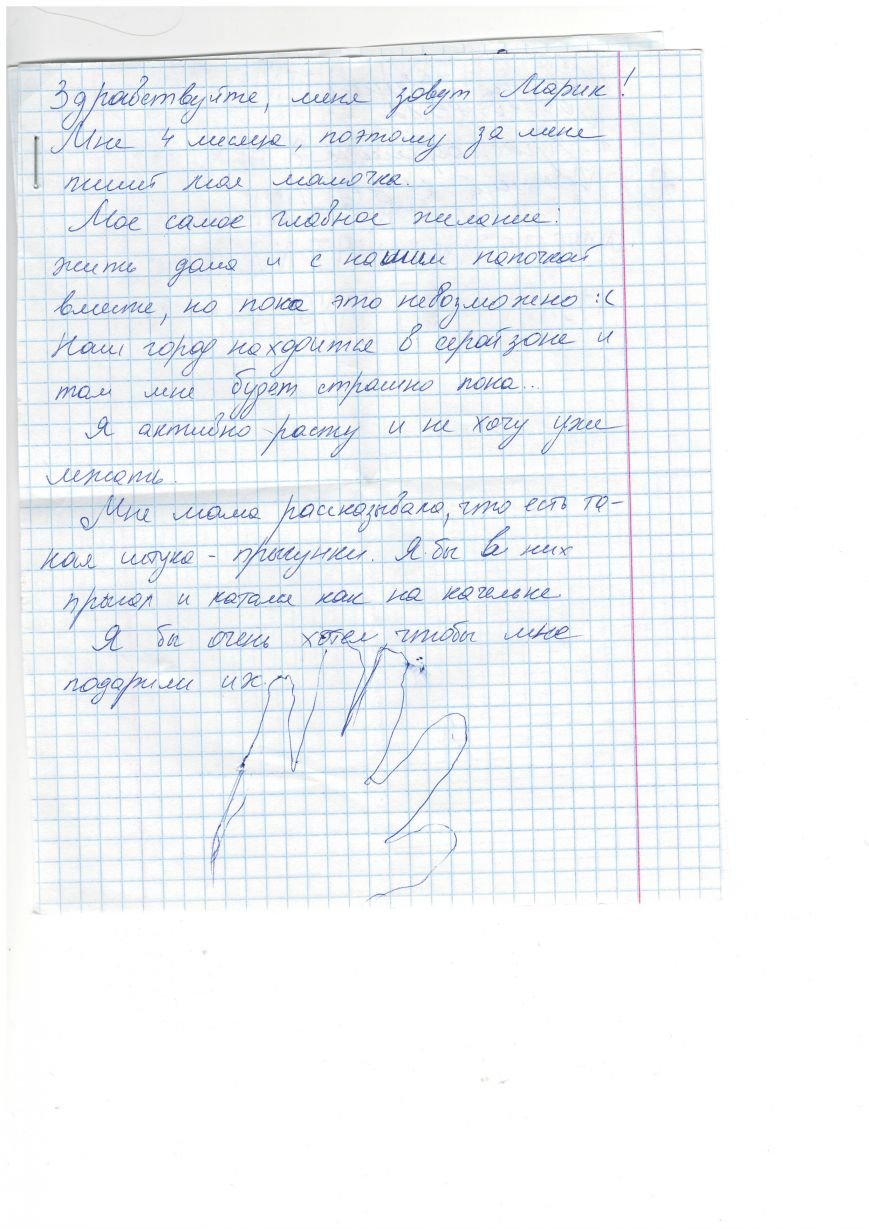 Здравствуйте, меня зовут Марик!
Мне 4 месяца, поэтому за меня
пишет моя мамочка.
Мое самое главное желание:
жить дома и с нашим папочкой
вместе, но пока это невозможно :(
Наш город находится в серой зоне и
там мне будет страшно пока..
Я активно расту и не хочу уже
лежать.
Мне мама рассказывала, что есть та-
кая штука - прыгунки. Я бы в них
прыгал и катался как на качельке
Я бы очень хотел, чтобы мне
подарили их.